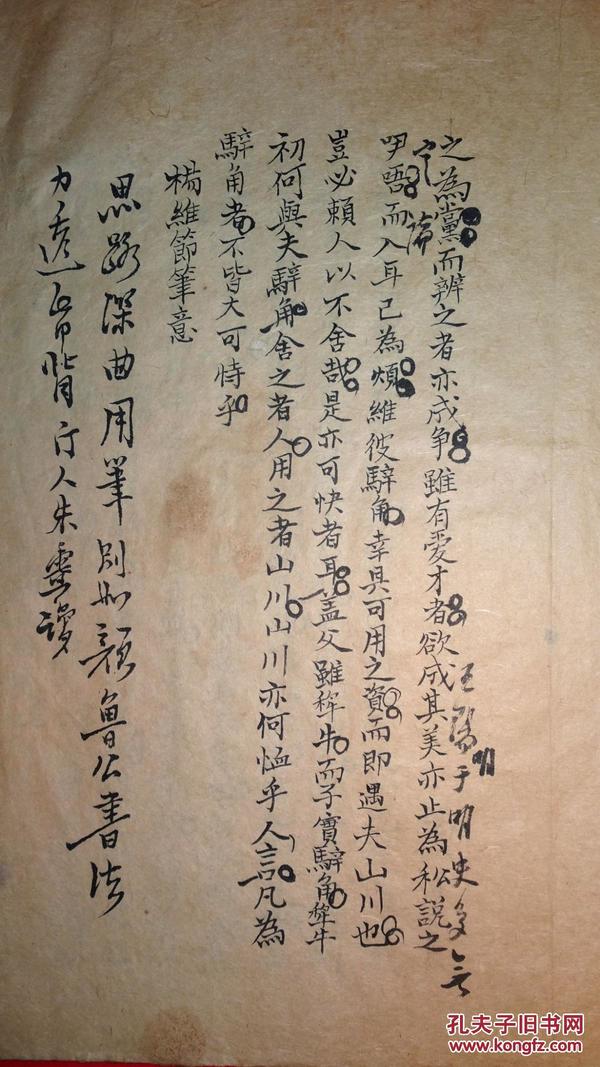 之為黨而辨之者亦成爭雖有愛才者欲成其美亦止為私說之
王陽明于明史多言
定論
咿唔而入耳已為煩維彼騂角幸具可用之資而即遇夫山川也
豈必賴人以不舍哉是亦可快者耳蓋父雖犂牛而子實騂角犂牛
初何與夫騂角舍之者人用之者山川山川亦何恤乎人言凡為
騂角者不皆大可恃乎
楊維節筆意
思路深曲用筆則如顏魯公書法
力透帋背 汀人朱靈讀
孔夫子旧书网
www.kongfz.com